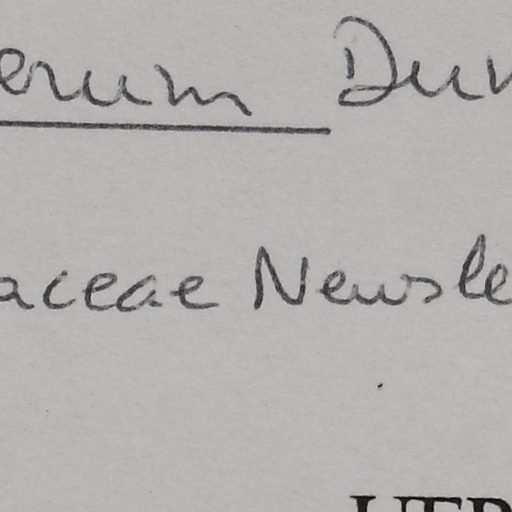 erum Dun
aceae Newsle
HER